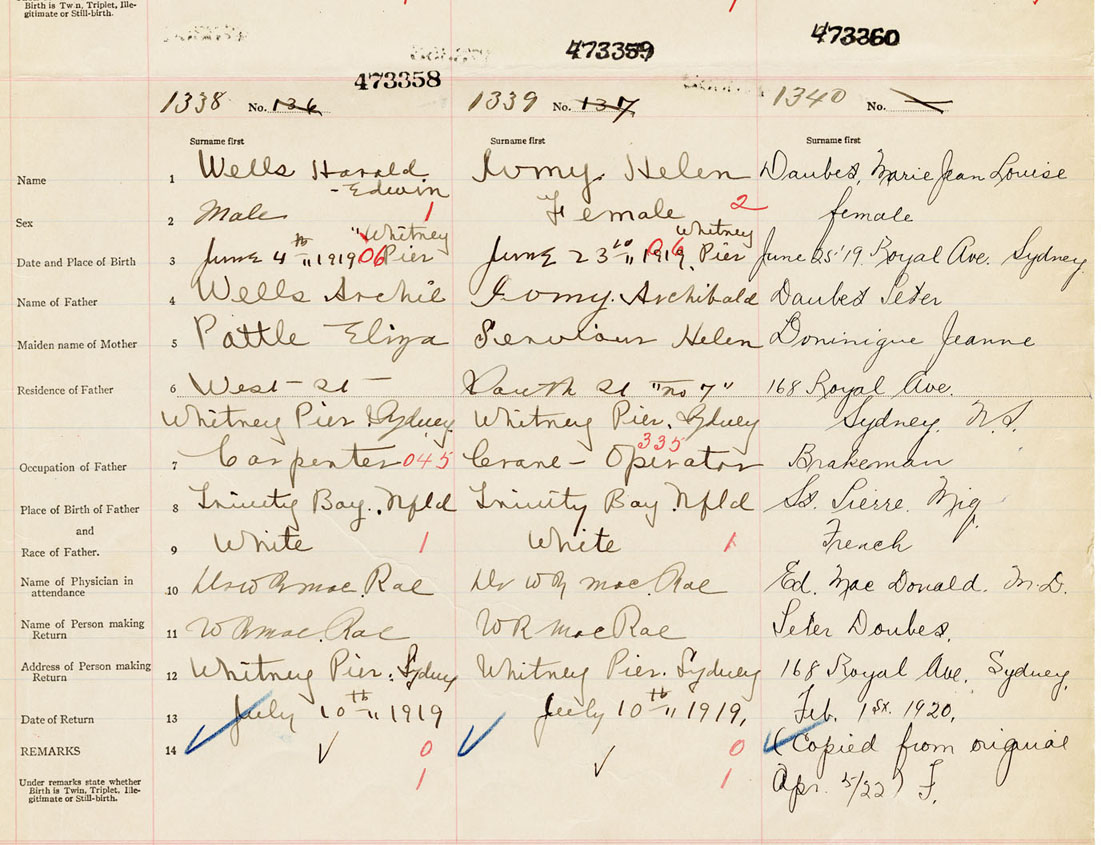 Birth is Twin, Triplet, Ille-
gitimate or Still-birth.
473358
473359
473360
1338 No. 136
1339 No. 137
1340 No.
Surname first
Surname first
Surname first
Name 1 Wells Harald Ivomy. Helen Daubes, Marie Jean Louise
-Edwin
Sex 2 Male 1 Female 2 female
"Whitney Whitney
Date and Place of Birth 3 June 4th " 1919 06 Pier June 23 " 1919, 06 Pier June 25'19. Royal Ave. Sydney
Name of Father 4 Wells Archie Ivomy. Archibald Daubes Peter
Maiden name of Mother 5 Pattle Eliza Serviour Helen Dominique Jeanne
Residence of Father 6 West - St - South St "no 7" 168 Royal Ave.
Whitney Pier Sydney Whitney Pier. Sydney Sydney. N.S.
335
Occupation of Father 7 Carpenter 045 Crane - Operator Brakeman
Place of Birth of Father 8 Trinity Bay. Nfld Trinity Bay. Nfld St. Pierre. Miq.
and
Race of Father. 9 White 1 White 1 French
Name of Physician in
attendance 10 Dr W R Mac.Rae Dr W R Mac.Rae Ed. Mac Donald. M.D.
Name of Person making
Return 11 W R Mac.Rae W R MacRae Peter Doubes,
Address of Person making
Return 12 Whitney Pier. Sydney Whitney Pier. Sydney 168 Royal Ave. Sydney,
Date of Return 13 July 10th " 1919 July 10th " 1919, Feb. 1st. 1920.
REMARKS 14 0 0 (Copied from original
1 1 Apr. 5/22) F.
Under remarks state whether
Birth is Twin, Triplet, Ille-
gitimate or Still-birth.